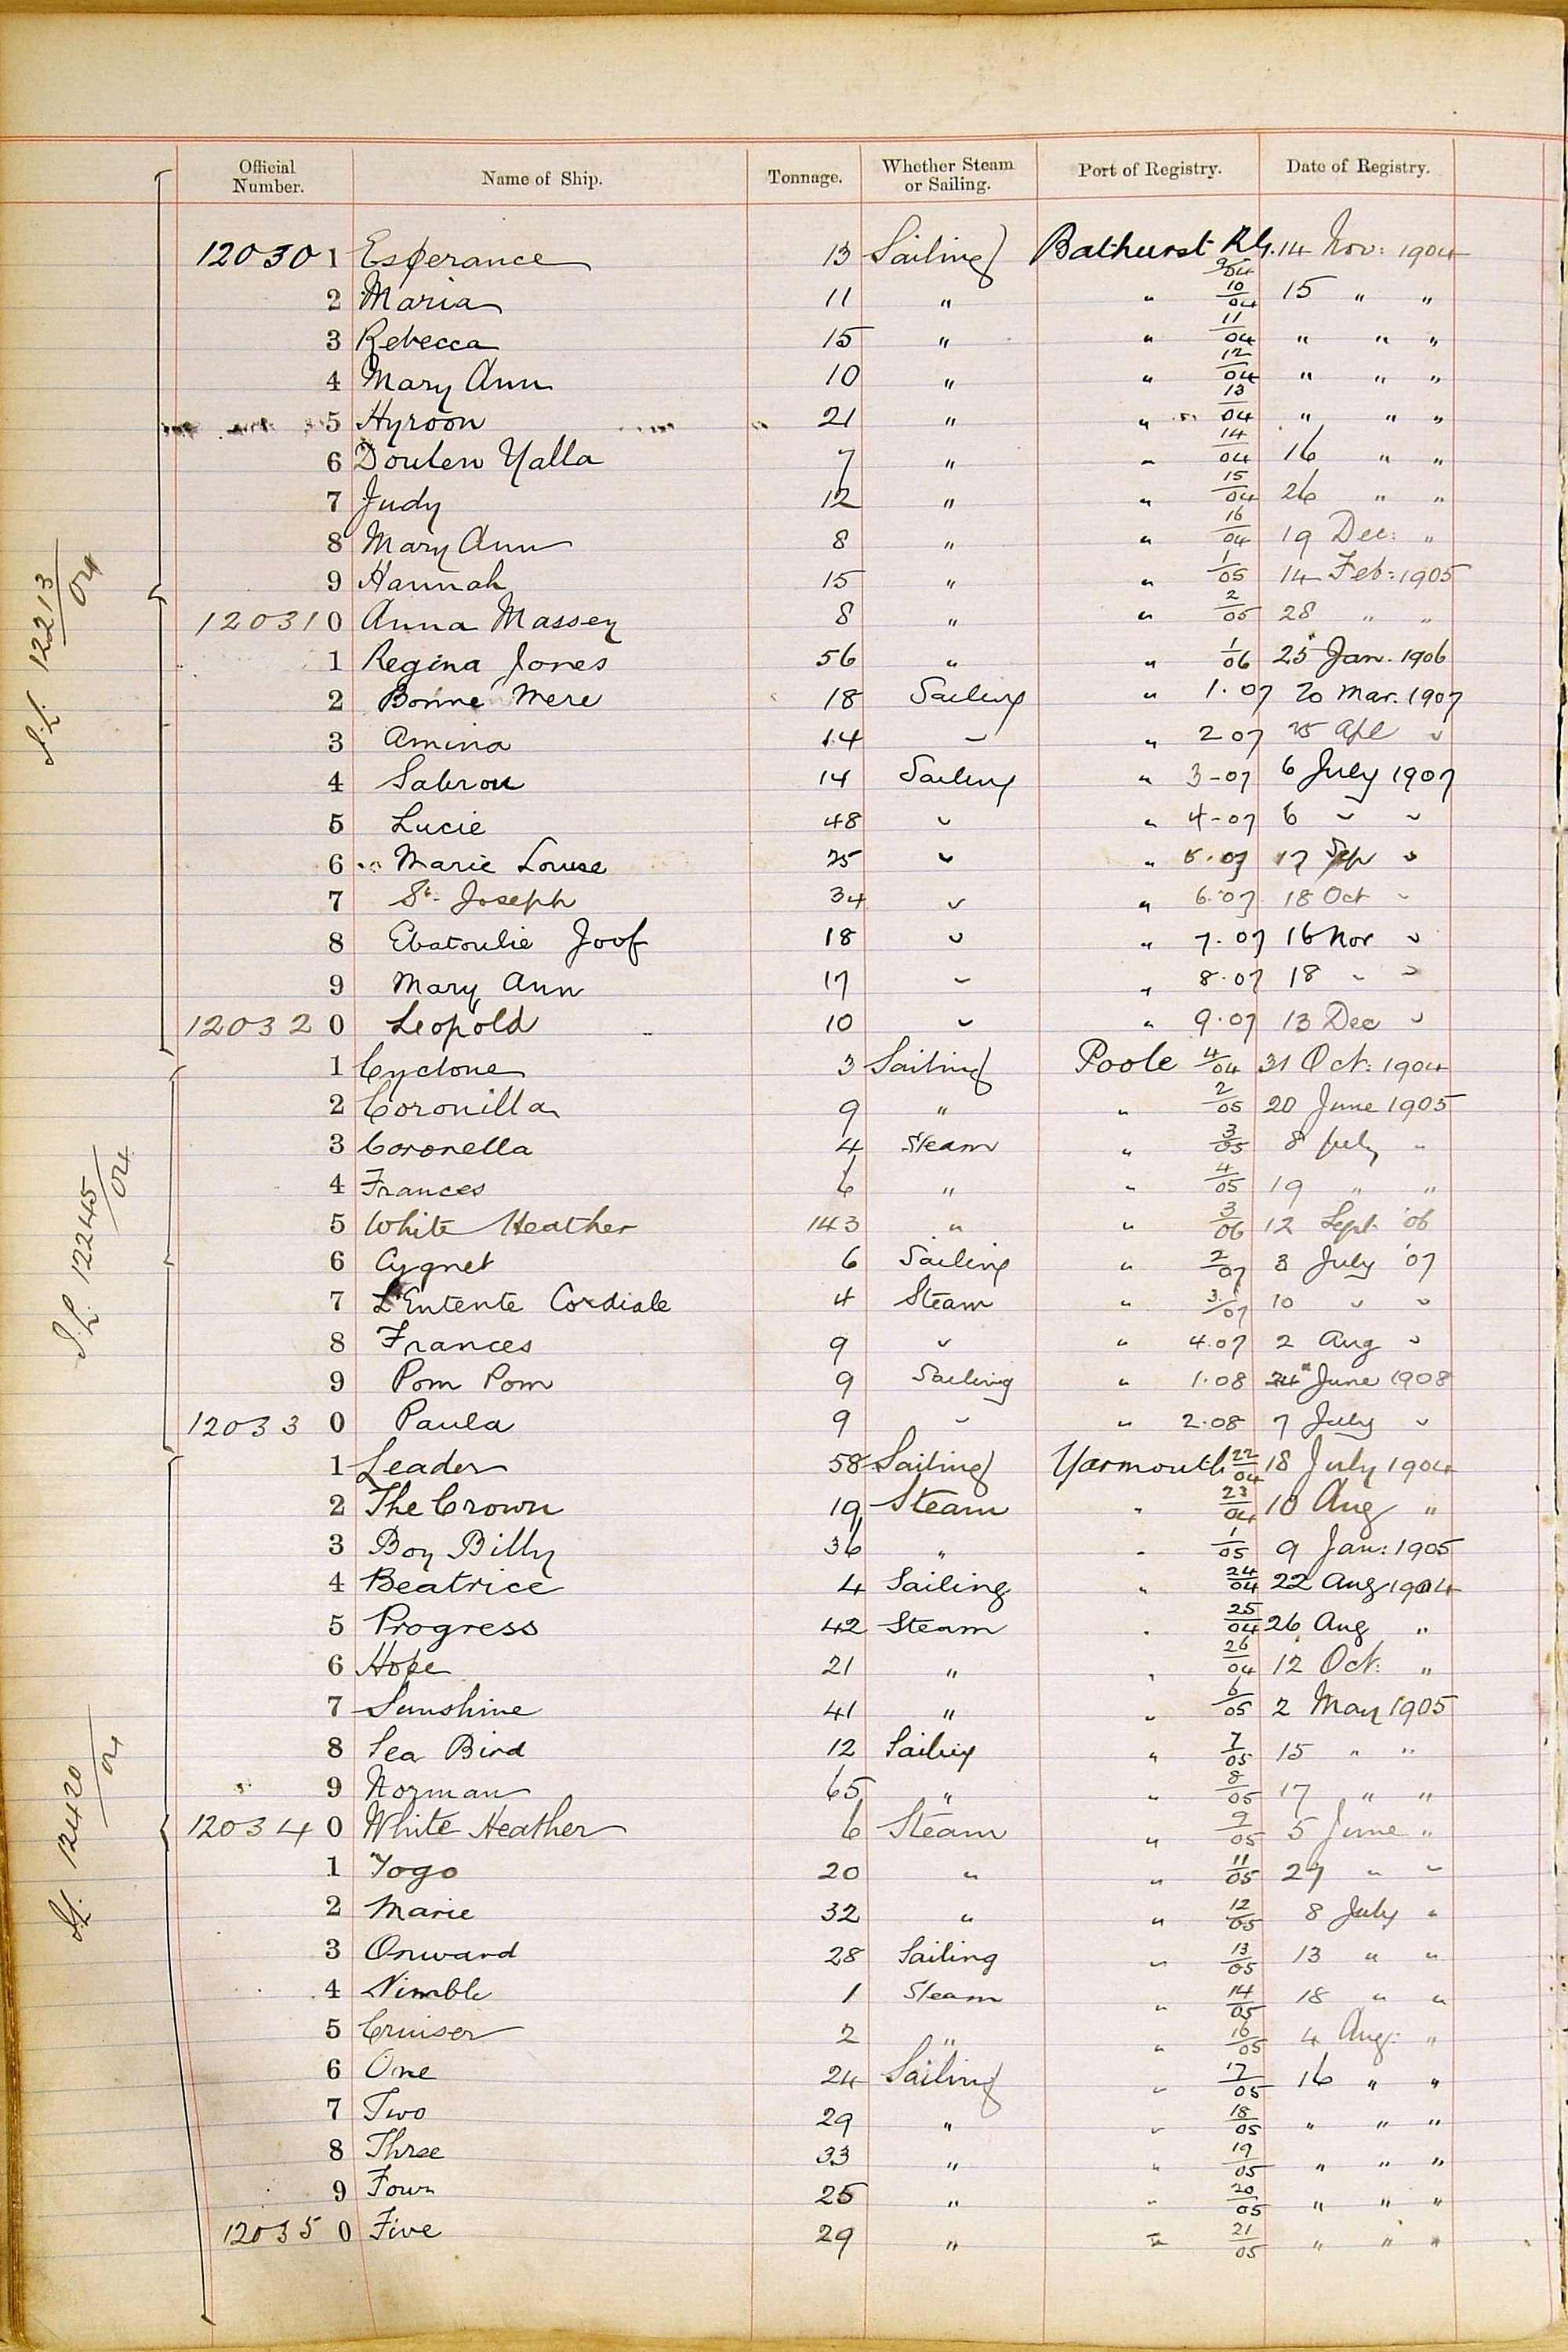 Official Number. Name of Ship. Tonnage. Whether Steam or Sailing. Port of Registry. Date of Registry.
120301 Esperance 13 Sailing Bathurst R.G. 9/04 14 Nov: 1904
2 Maria 11 " " 10/04 15 " "
3 Rebecca 15 " " 11/04 " " "
4 Mary Ann 10 " " 12/04 " " "
5 Hyroon 21 " " 13/04 " " "
6 Doulen Yalla 7 " " 14/04 16 " "
7 Judy 12 " " 15/04 26 " "
8 Mary Ann 8 " " 16/04 19 Dec: "
9 Hannah 15 " " 1/05 14 Feb: 1905
120310 Anna Massey 8 " " 2/05 28 " "
1 Regina Jones 56 " " 1/06 25 Jan. 1906
2 Bonne Mere 18 Sailing " 1.07 20 Mar. 1907
3 Amina 14 " " 2 07 25 Apl "
4 Sabrou 14 Sailing " 3-07 6 July 1907
5 Lucie 48 " " 4-07 6 " "
6 Marie Louise 25 " " 5.07 17 Sep "
7 St. Joseph 34 " " 6.07 18 Oct "
8 Ebatoulie Joof 18 " " 7.07 16 Nov "
9 Mary Ann 17 " " 8.07 18 " "
120320 Leopold 10 " " 9.07 13 Dec "
1 Cyclone 3 Sailing Poole 4/04 31 Oct: 1904
2 Coronilla 9 " " 2/05 20 June 1905
3 Coronella 4 Steam " 3/05 8 July "
4 Frances 6 " " 4/05 19 " "
5 White Heather 143 " " 3/06 12 Sept. '06
6 Cygnet 6 Sailing " 2/07 3 July '07
7 L'Entente Cordiale 4 Steam " 3/07 10 " "
8 Frances 9 " " 4.07 2 Aug "
9 Pom Pom 9 Sailing " 1.08 24 June 1908
120330 Paula 9 " " 2.08 7 July "
1 Leader 58 Sailing Yarmouth 22/04 18 July 1904
2 The Crown 19 Steam " 23/04 10 Aug "
3 Boy Billy 36 " " 1/05 9 Jan: 1905
4 Beatrice 4 Sailing " 24/04 22 Aug 1904
5 Progress 42 Steam " 25/04 26 Aug "
6 Hope 21 " " 26/04 12 Oct: "
7 Sunshine 41 " " 6/05 2 May 1905
8 Sea Bird 12 Sailing " 7/05 15 " "
9 Norman 65 " " 8/05 17 " "
120340 White Heather 6 Steam " 9/05 5 June "
1 Togo 20 " " 11/05 27 " "
2 Marie 32 " " 12/05 8 July "
3 Onward 28 Sailing " 13/05 13 " "
4 Nimble 1 Steam " 14/05 18 " "
5 Cruiser 2 " " 16/05 4 Aug: "
6 One 24 Sailing " 17/05 16 " "
7 Two 29 " " 18/05 " " "
8 Three 33 " " 19/05 " " "
9 Four 25 " " 20/05 " " "
120350 Five 29 " " 21/05 " " "
S.L. 12213/04
S.L. 12245/04
S.L. 12420/04